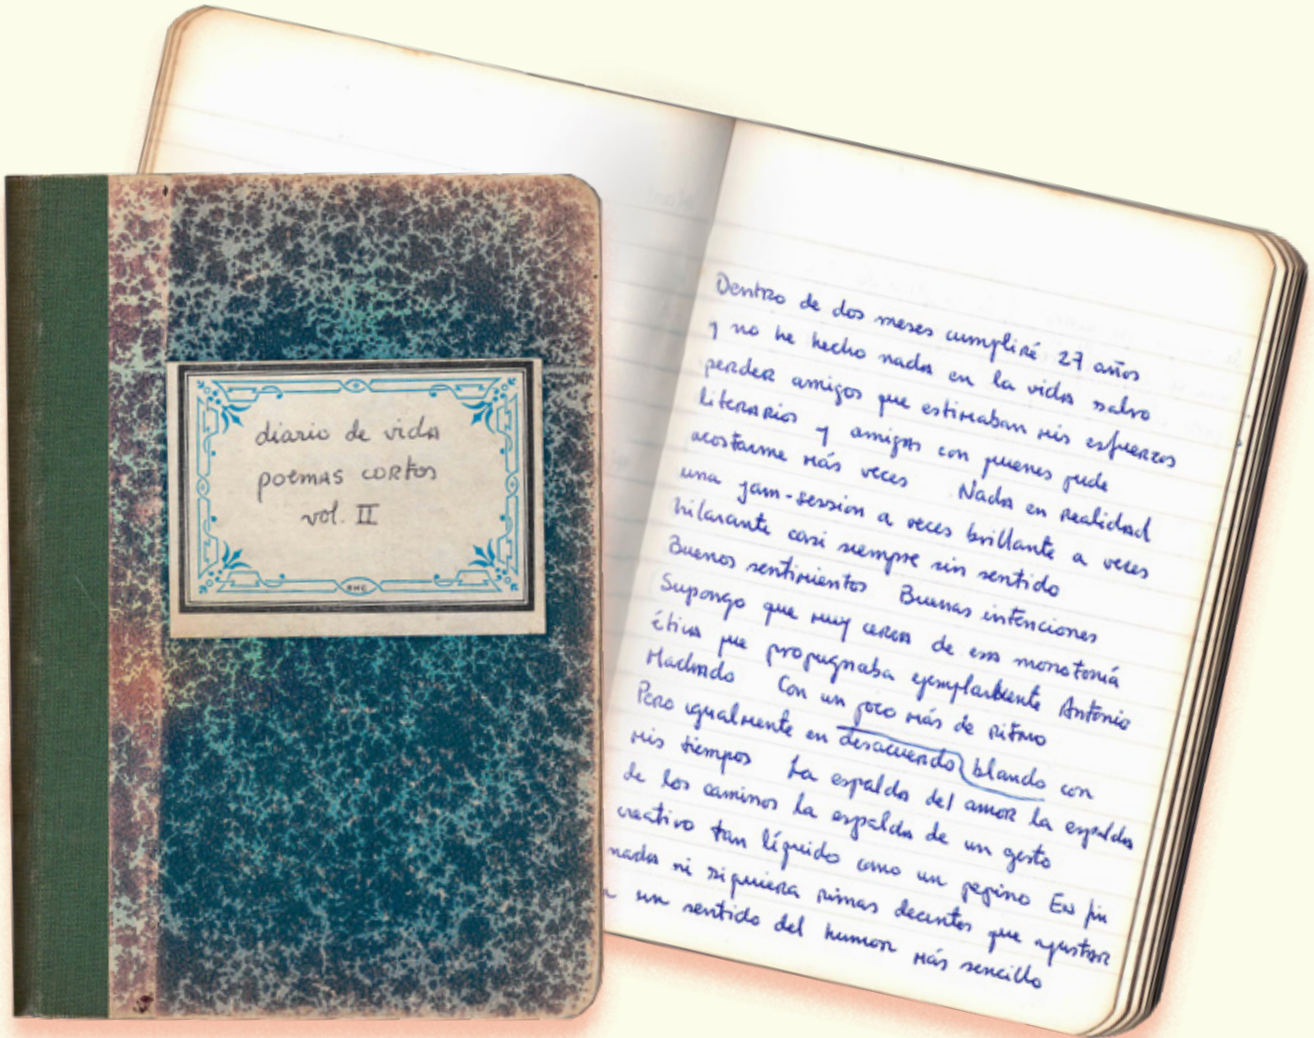 diario de vida
poemas cortos
vol. II
RHC
Dentro de dos meses cumpliré 27 años
y no he hecho nada en la vida salvo
perder amigos que estimaban mis esfuerzos
literarios y amigas con quienes pude
acostarme más veces Nada en realidad
una jam-session a veces brillante a veces
hilarante casi siempre sin sentido
Buenos sentimientos Buenas intenciones
Supongo que muy cerca de esa monotonía
ética que propugnaba ejemplarmente Antonio
Machado Con un poco más de ritmo
Pero igualmente en desacuerdo blando con
mis tiempos La espalda del amor la espalda
de los caminos la espalda de un gesto
creativo tan líquido como un pepino En fin
nada ni siquiera rimas decentes que ajustar
a un sentido del humor más sencillo